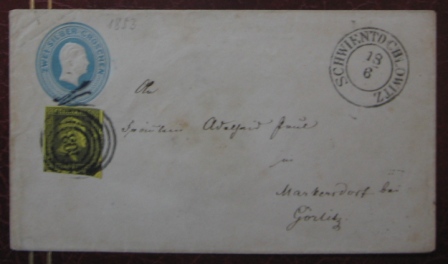 1853
ZWEI SILBER GROSCHEN
SCHWIENTOCHLOWITZ
18
6
An
Fräulein Adelheid Paul
in
Markersdorf bei
Görlitz.